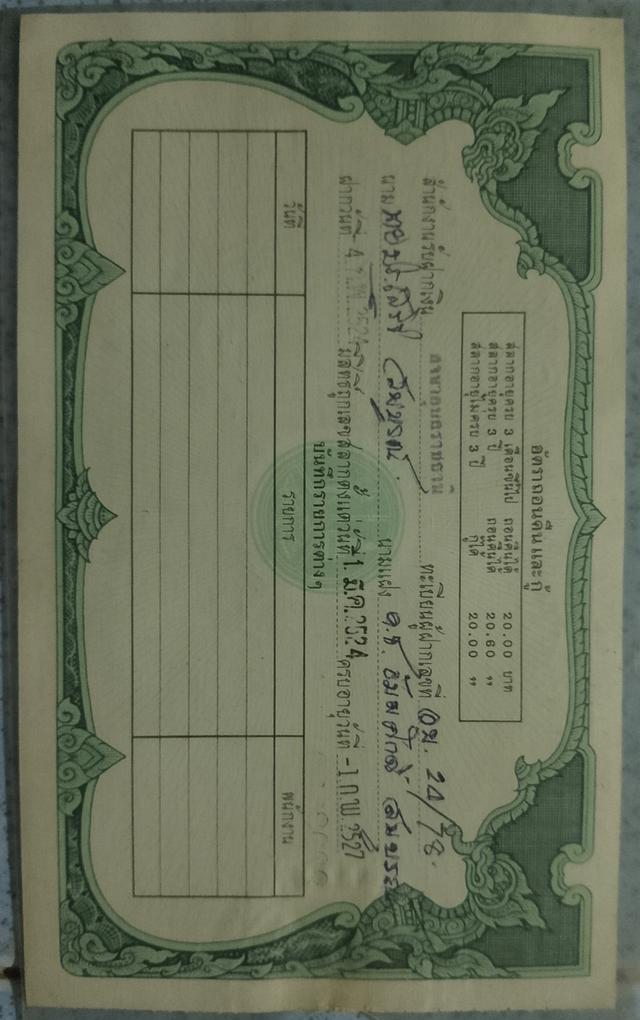 อัตราถอนคืน และ กู้
สลากอายุครบ 3 เดือนขึ้นไป ถอนคืนได้ 20.00 บาท
สลากอายุครบ 3 ปี ถอนคืนได้ 20.60 ,,
สลากอายุไม่ครบ 3 ปี กู้ได้ 20.00 ,,
สำนักงานรับฝากเงิน ทะเบียนผู้ฝากเลขที่ 24/78
นาม นามแฝง ด.ช.
ฝากวันที่ -4 ก.พ. 2524 มีสิทธิถูกเลขสลากตั้งแต่วันที่ 1 มี.ค. 2524 ครบอายุวันที่ -1 ก.พ. 2527
บันทึกรายการต่างๆ
วันที่ รายการ พนักงาน